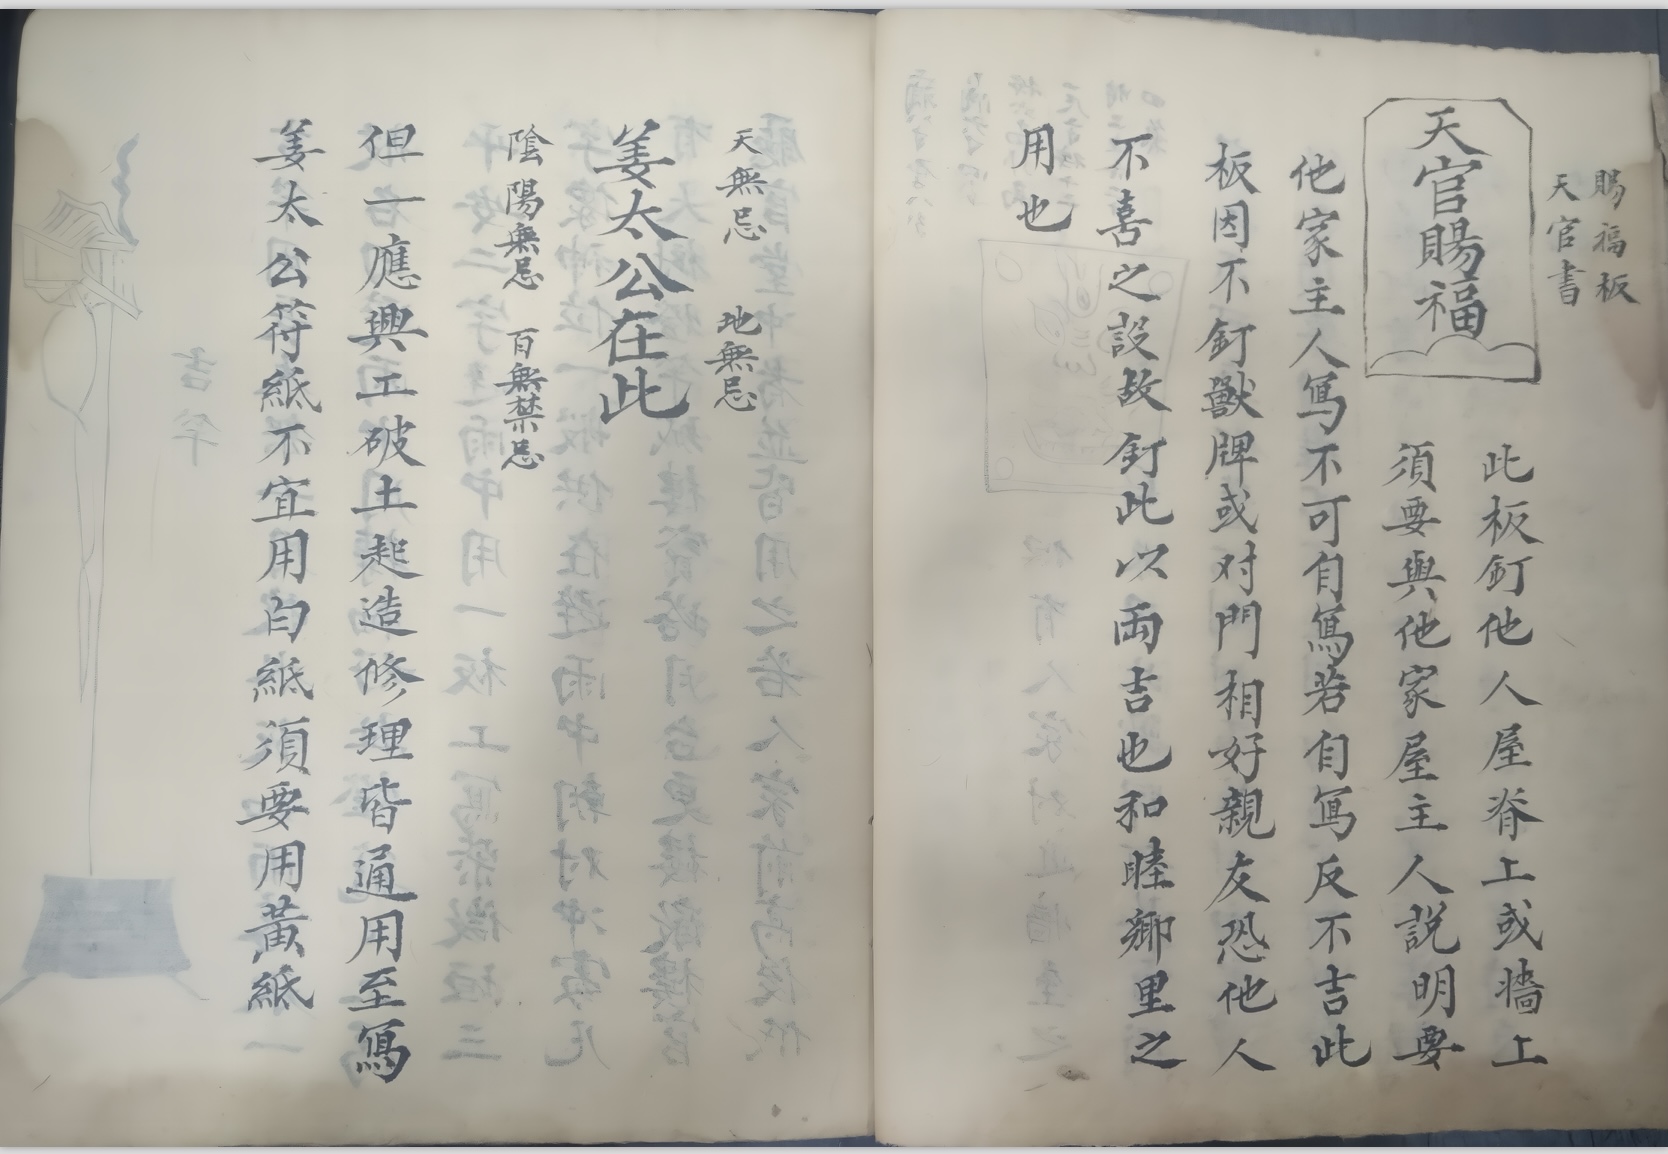 賜福板
天官書
天官賜福
此板釘他人屋脊上或牆上
須要與他家屋主人説明要
他家主人寫不可自寫若自寫反不吉此
板因不釘獸牌或对門相好親友恐他人
不喜之設故釘此以両吉也和睦鄉里之
用也
天無忌 地無忌
姜太公在此
陰陽無忌 百無禁忌
但一應興工破土起造修理皆通用至寫
姜太公符紙不宜用白紙須要用黃紙